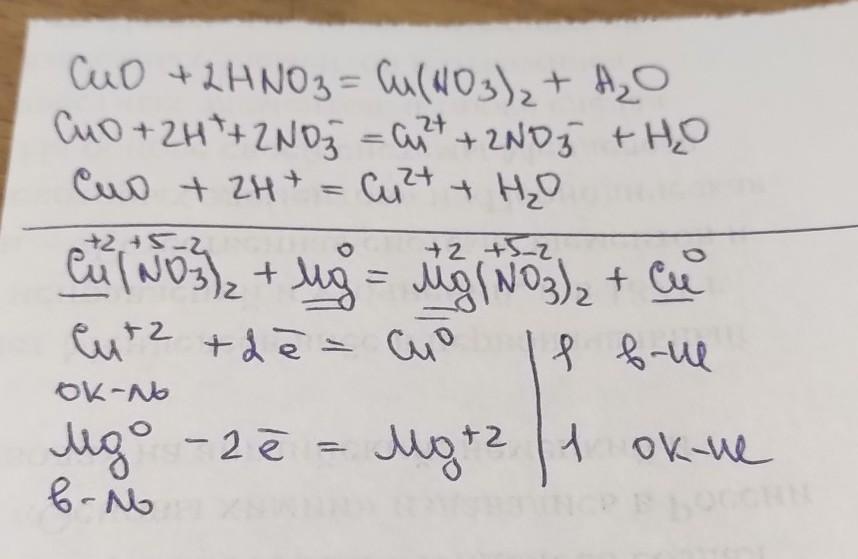 CuO + 2HNO₃ = Cu(NO₃)₂ + H₂O
CuO + 2H⁺ + 2NO₃⁻ = Cu²⁺ + 2NO₃⁻ + H₂O
CuO + 2H⁺ = Cu²⁺ + H₂O
+2 +5 -2 0 +2 +5 -2 0
Cu(NO₃)₂ + Mg = Mg(NO₃)₂ + Cu
Cu⁺² + 2ē = Cu⁰ | 1 в-ие
ок-ль
Mg⁰ - 2ē = Mg⁺² | 1 ок-ие
в-ль